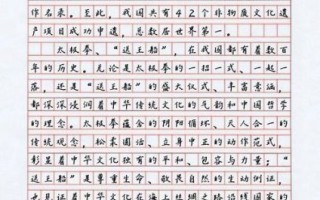 作名录。至此，我国共有42个非物质文化遗
产项目成功申遗，总数居世界第一。
太极拳、“送王船”，在我国都有着数百
年的历史。无论是太极拳的一招一式、一起一
落，还是“送王船”的盛大仪式、丰富意涵，
都深深浸润着中华传统文化的气韵和中国哲学
的理念。太极拳蕴含的阴阳循环、天人合一的
传统观念，松柔圆活、立身中正的动作范式，
彰显着中华文化独有的平和、包容与力量；“
送王船”是尊重生命、敬畏自然的生动例证，
也见证着中华文化在海上丝绸之路沿线国家的